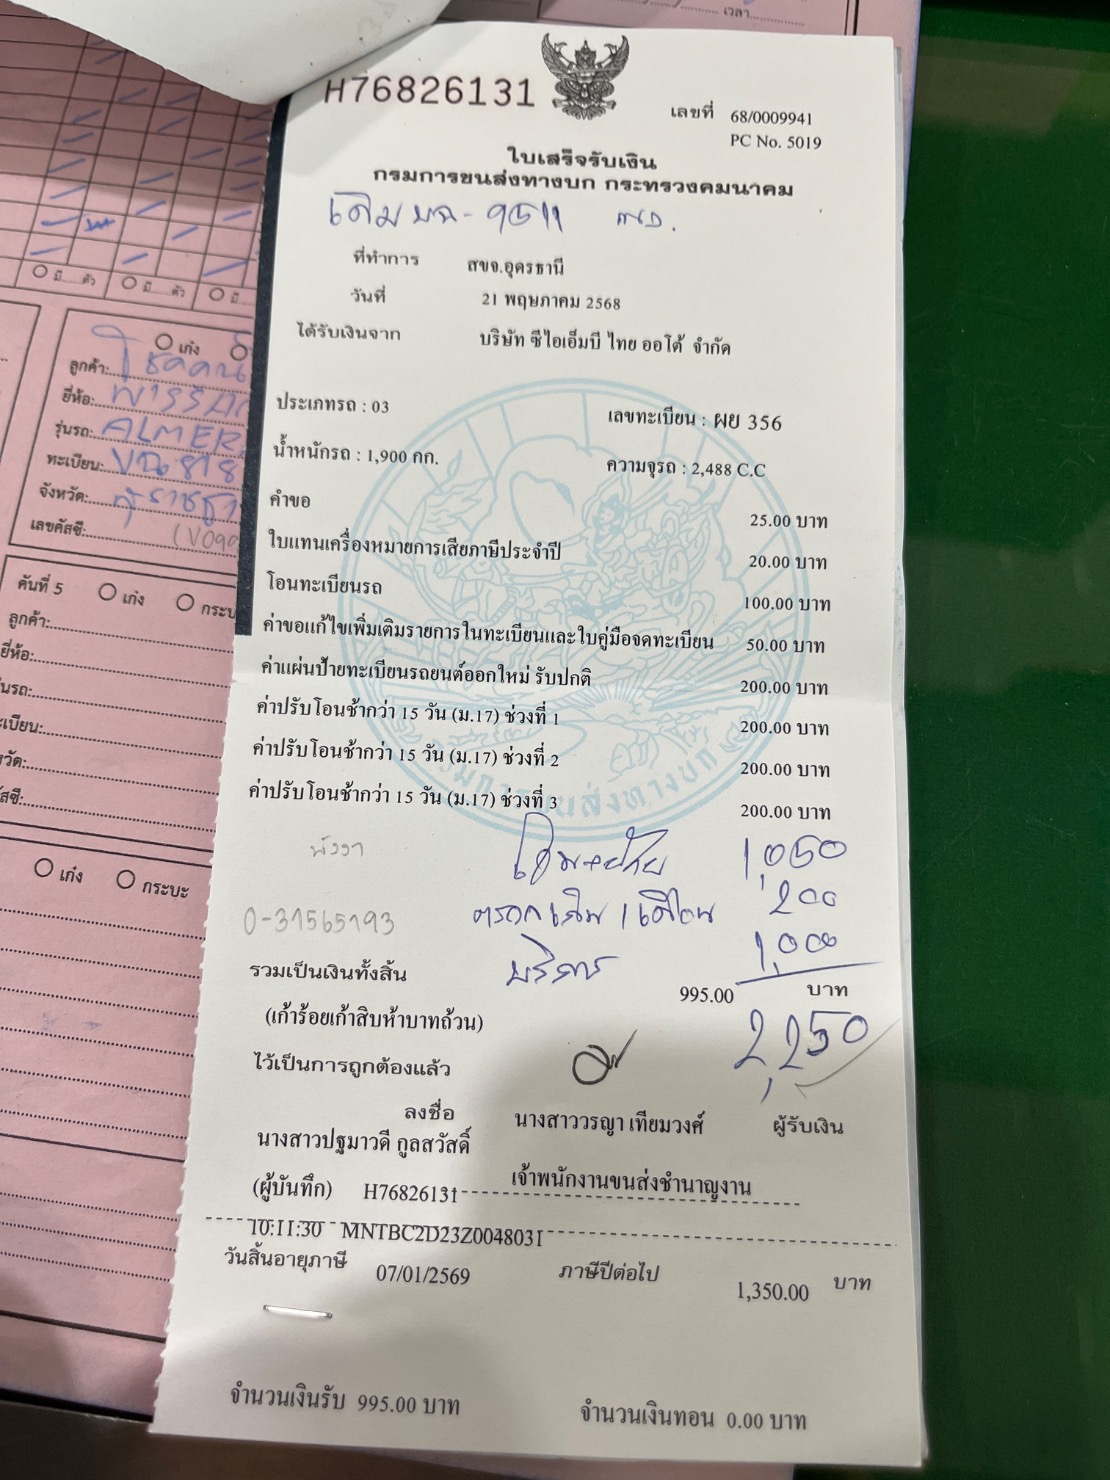 เวลา
H76826131
เลขที่ 68/0009941
PC No. 5019
ใบเสร็จรับเงิน
กรมการขนส่งทางบก กระทรวงคมนาคม
เดิม - 9511
ที่ทำการ สขจ.อุดรธานี
วันที่ 21 พฤษภาคม 2568
ได้รับเงินจาก บริษัท ซีไอเอ็มบี ไทย ออโต้ จำกัด
ประเภทรถ : 03 เลขทะเบียน : ผย 356
น้ำหนักรถ : 1,900 กก. ความจุรถ : 2,488 C.C
คำขอ 25.00 บาท
ใบแทนเครื่องหมายการเสียภาษีประจำปี 20.00 บาท
โอนทะเบียนรถ 100.00 บาท
ค่าขอแก้ไขเพิ่มเติมรายการในทะเบียนและใบคู่มือจดทะเบียน 50.00 บาท
ค่าแผ่นป้ายทะเบียนรถยนต์ออกใหม่ รับปกติ 200.00 บาท
ค่าปรับโอนช้ากว่า 15 วัน (ม.17) ช่วงที่ 1 200.00 บาท
ค่าปรับโอนช้ากว่า 15 วัน (ม.17) ช่วงที่ 2 200.00 บาท
ค่าปรับโอนช้ากว่า 15 วัน (ม.17) ช่วงที่ 3 200.00 บาท
พังงา 1,050
0-31565193 ตรวจเล่ม 1 เดือน 200
บริการ 1,000
รวมเป็นเงินทั้งสิ้น 995.00 บาท
(เก้าร้อยเก้าสิบห้าบาทถ้วน) 2,250
ไว้เป็นการถูกต้องแล้ว
ลงชื่อ นางสาววรญา เทียมวงศ์ ผู้รับเงิน
นางสาวปฐมาวดี กูลสวัสดิ์
(ผู้บันทึก) H76826131 เจ้าพนักงานขนส่งชำนาญงาน
10:11:30 MNTBC2D23Z0048031
วันสิ้นอายุภาษี 07/01/2569 ภาษีปีต่อไป 1,350.00 บาท
จำนวนเงินรับ 995.00 บาท จำนวนเงินทอน 0.00 บาท
มี ตัว มี ตัว มี
เก๋ง
ลูกค้า:
ยี่ห้อ:
รุ่นรถ: ALMER
ทะเบียน:
จังหวัด:
เลขคัสซี:
คันที่ 5 เก๋ง กระบ
ลูกค้า:
ยี่ห้อ:
เก๋ง กระบะ